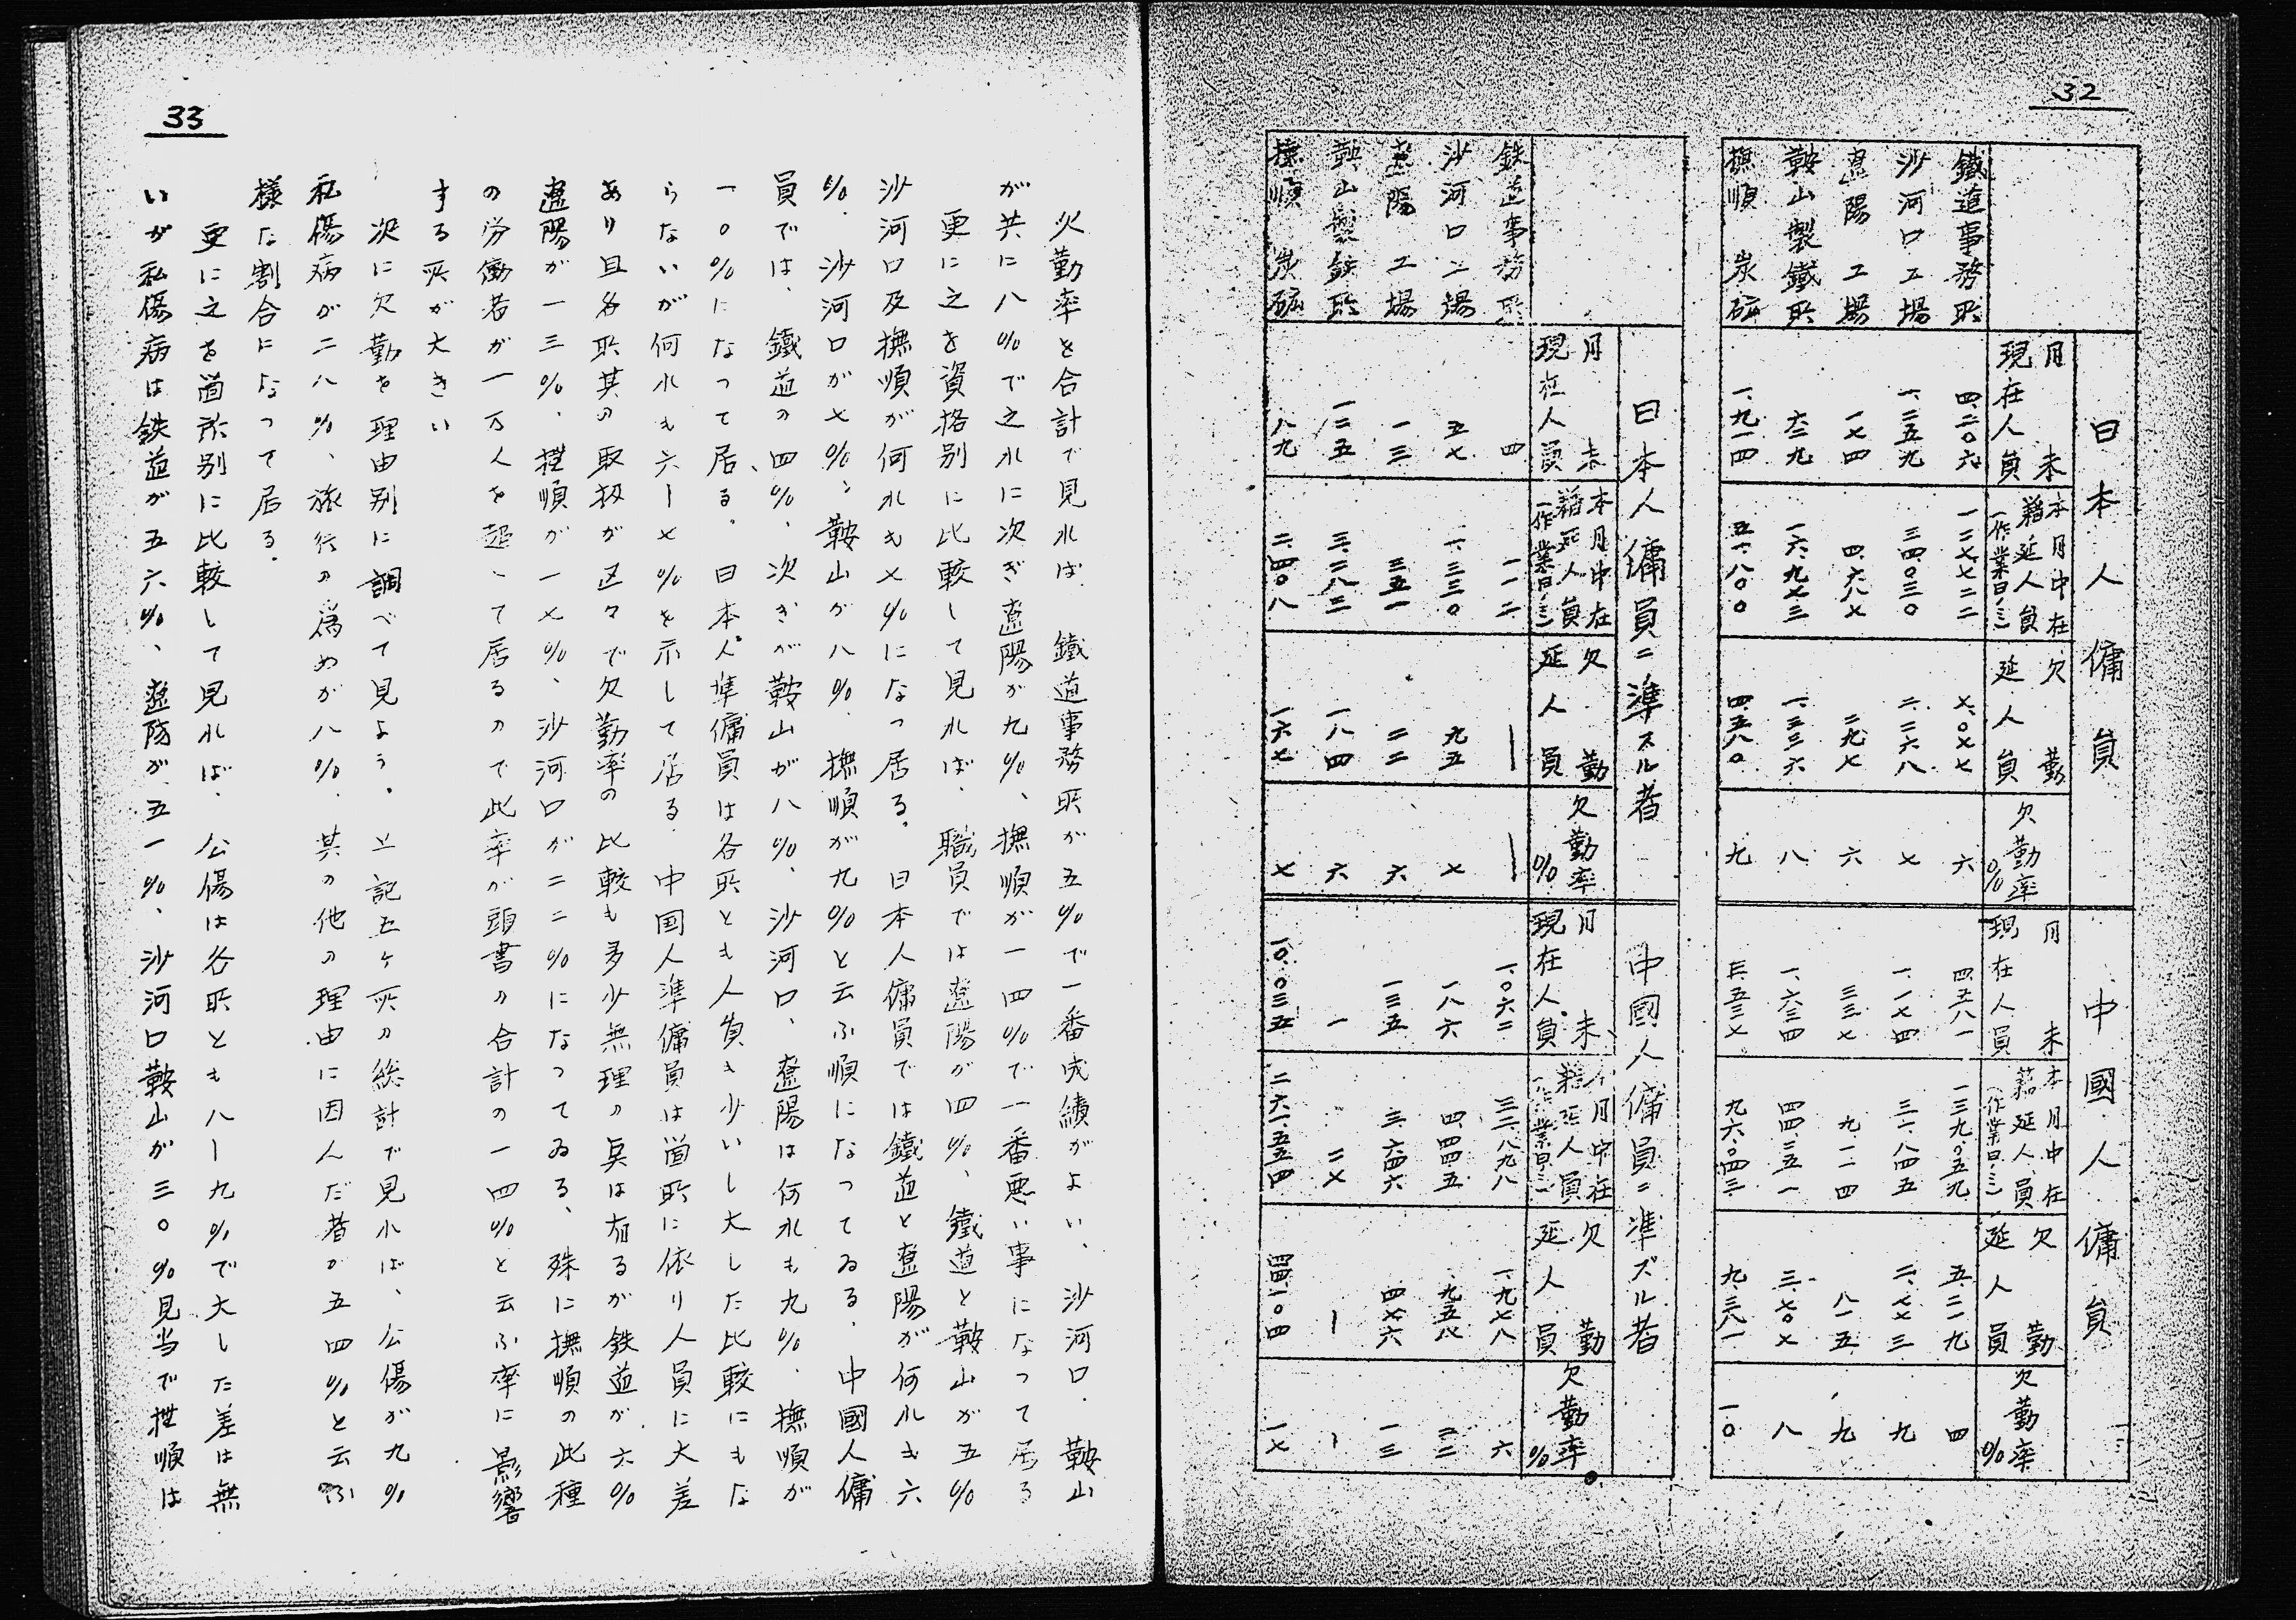 32
日本人傭員
中國人傭員
月末現在人員
本月中在籍延人員(作業日ノミ)
欠勤延人員
欠勤率%
月末現在人員
本月中在籍延人員(作業日ノミ)
欠勤延人員
欠勤率%
鐵道事務所 四、二〇六 一二七、七二二 七、〇七七 六 四、五八一 一三九、〇五九 五、二一九 四
沙河口工場 一、二五九 三四、〇三〇 二、二六八 七 一、一七四 三一、八四五 二、七七三 九
遼陽工場 一七四 四、六八七 二九七 六 三三七 九、一一四 八一五 九
鞍山製鐵所 六二九 一六、九七三 一、三三六 八 一、六三四 四四、三五一 三、七〇七 八
撫順炭砿 一、九一四 五一、八〇〇 四、五八〇 九 三、五三七 九六、〇四三 九、三八一 一〇
日本人傭員ニ準スル者
中國人傭員ニ準ズル者
月末現在人員
本月中在籍延人員(作業日ノミ)
欠勤延人員
欠勤率%
月末現在人員
本月中在籍延人員(作業日ノミ)
欠勤延人員
欠勤率%
鉄道事務所 四 一一二 — — 一、〇六二 三二、八九八 一、九七八 六
沙河口工場 五七 一、三三〇 九五 七 一八六 四、四四五 九五八 二二
遼陽工場 一三 三五一 二二 六 一三五 三、六四六 四七六 一三
鞍山製鉄所 一二五 三、二八三 一八四 六 一 二七 — —
撫順炭砿 八九 二、四〇八 一六七 七 一〇、〇三五 二六一、五五四 四四、一〇四 一七
33
火勤率を合計で見れば、鐵道事務所が五%で一番成績がよい、沙河口、鞍山
が共に八%で之れに次ぎ遼陽が九%、撫順が一四%で一番悪い事になって居る
更に之を資格別に比較して見れば、職員では遼陽が四%、鐵道と鞍山が五%
沙河口及撫順が何れも七%になつ居る。日本人傭員では鐵道と遼陽が何れも六
%、沙河口が七%、鞍山が八%、撫順が九%と云ふ順になってゐる、中國人傭
員では、鐵道の四%、次ぎが鞍山が八%、沙河口、遼陽は何れも九%、撫順が
一〇%になって居る。日本人準傭員は各所とも人員も少いし大した比較にもな
らないが何れも六ー七%を示して居る、中国人準傭員は箇所に依り人員に大差
あり且各所其の取扱が区々で欠勤率の比較も多少無理の点は有るが鉄道が六%
遼陽が一三%、撫順が一七%、沙河口が二二%になってゐる、殊に撫順の此種
の労働者が一万人を超へて居るので此率が頭書の合計の一四%と云ふ率に影響
する所が大きい
次に欠勤を理由別に調べて見よう。上記五ヶ所の総計で見れば、公傷が九%
私傷病が二八%、旅行の為めが八%、其の他の理由に因んだ者が五四%と云ふ
様な割合になって居る。
更に之を箇所別に比較して見れば、公傷は各所とも八ー九%で大した差は無
いが私傷病は鉄道が五六%、遼陽が五一%、沙河口鞍山が三〇%見当で撫順は